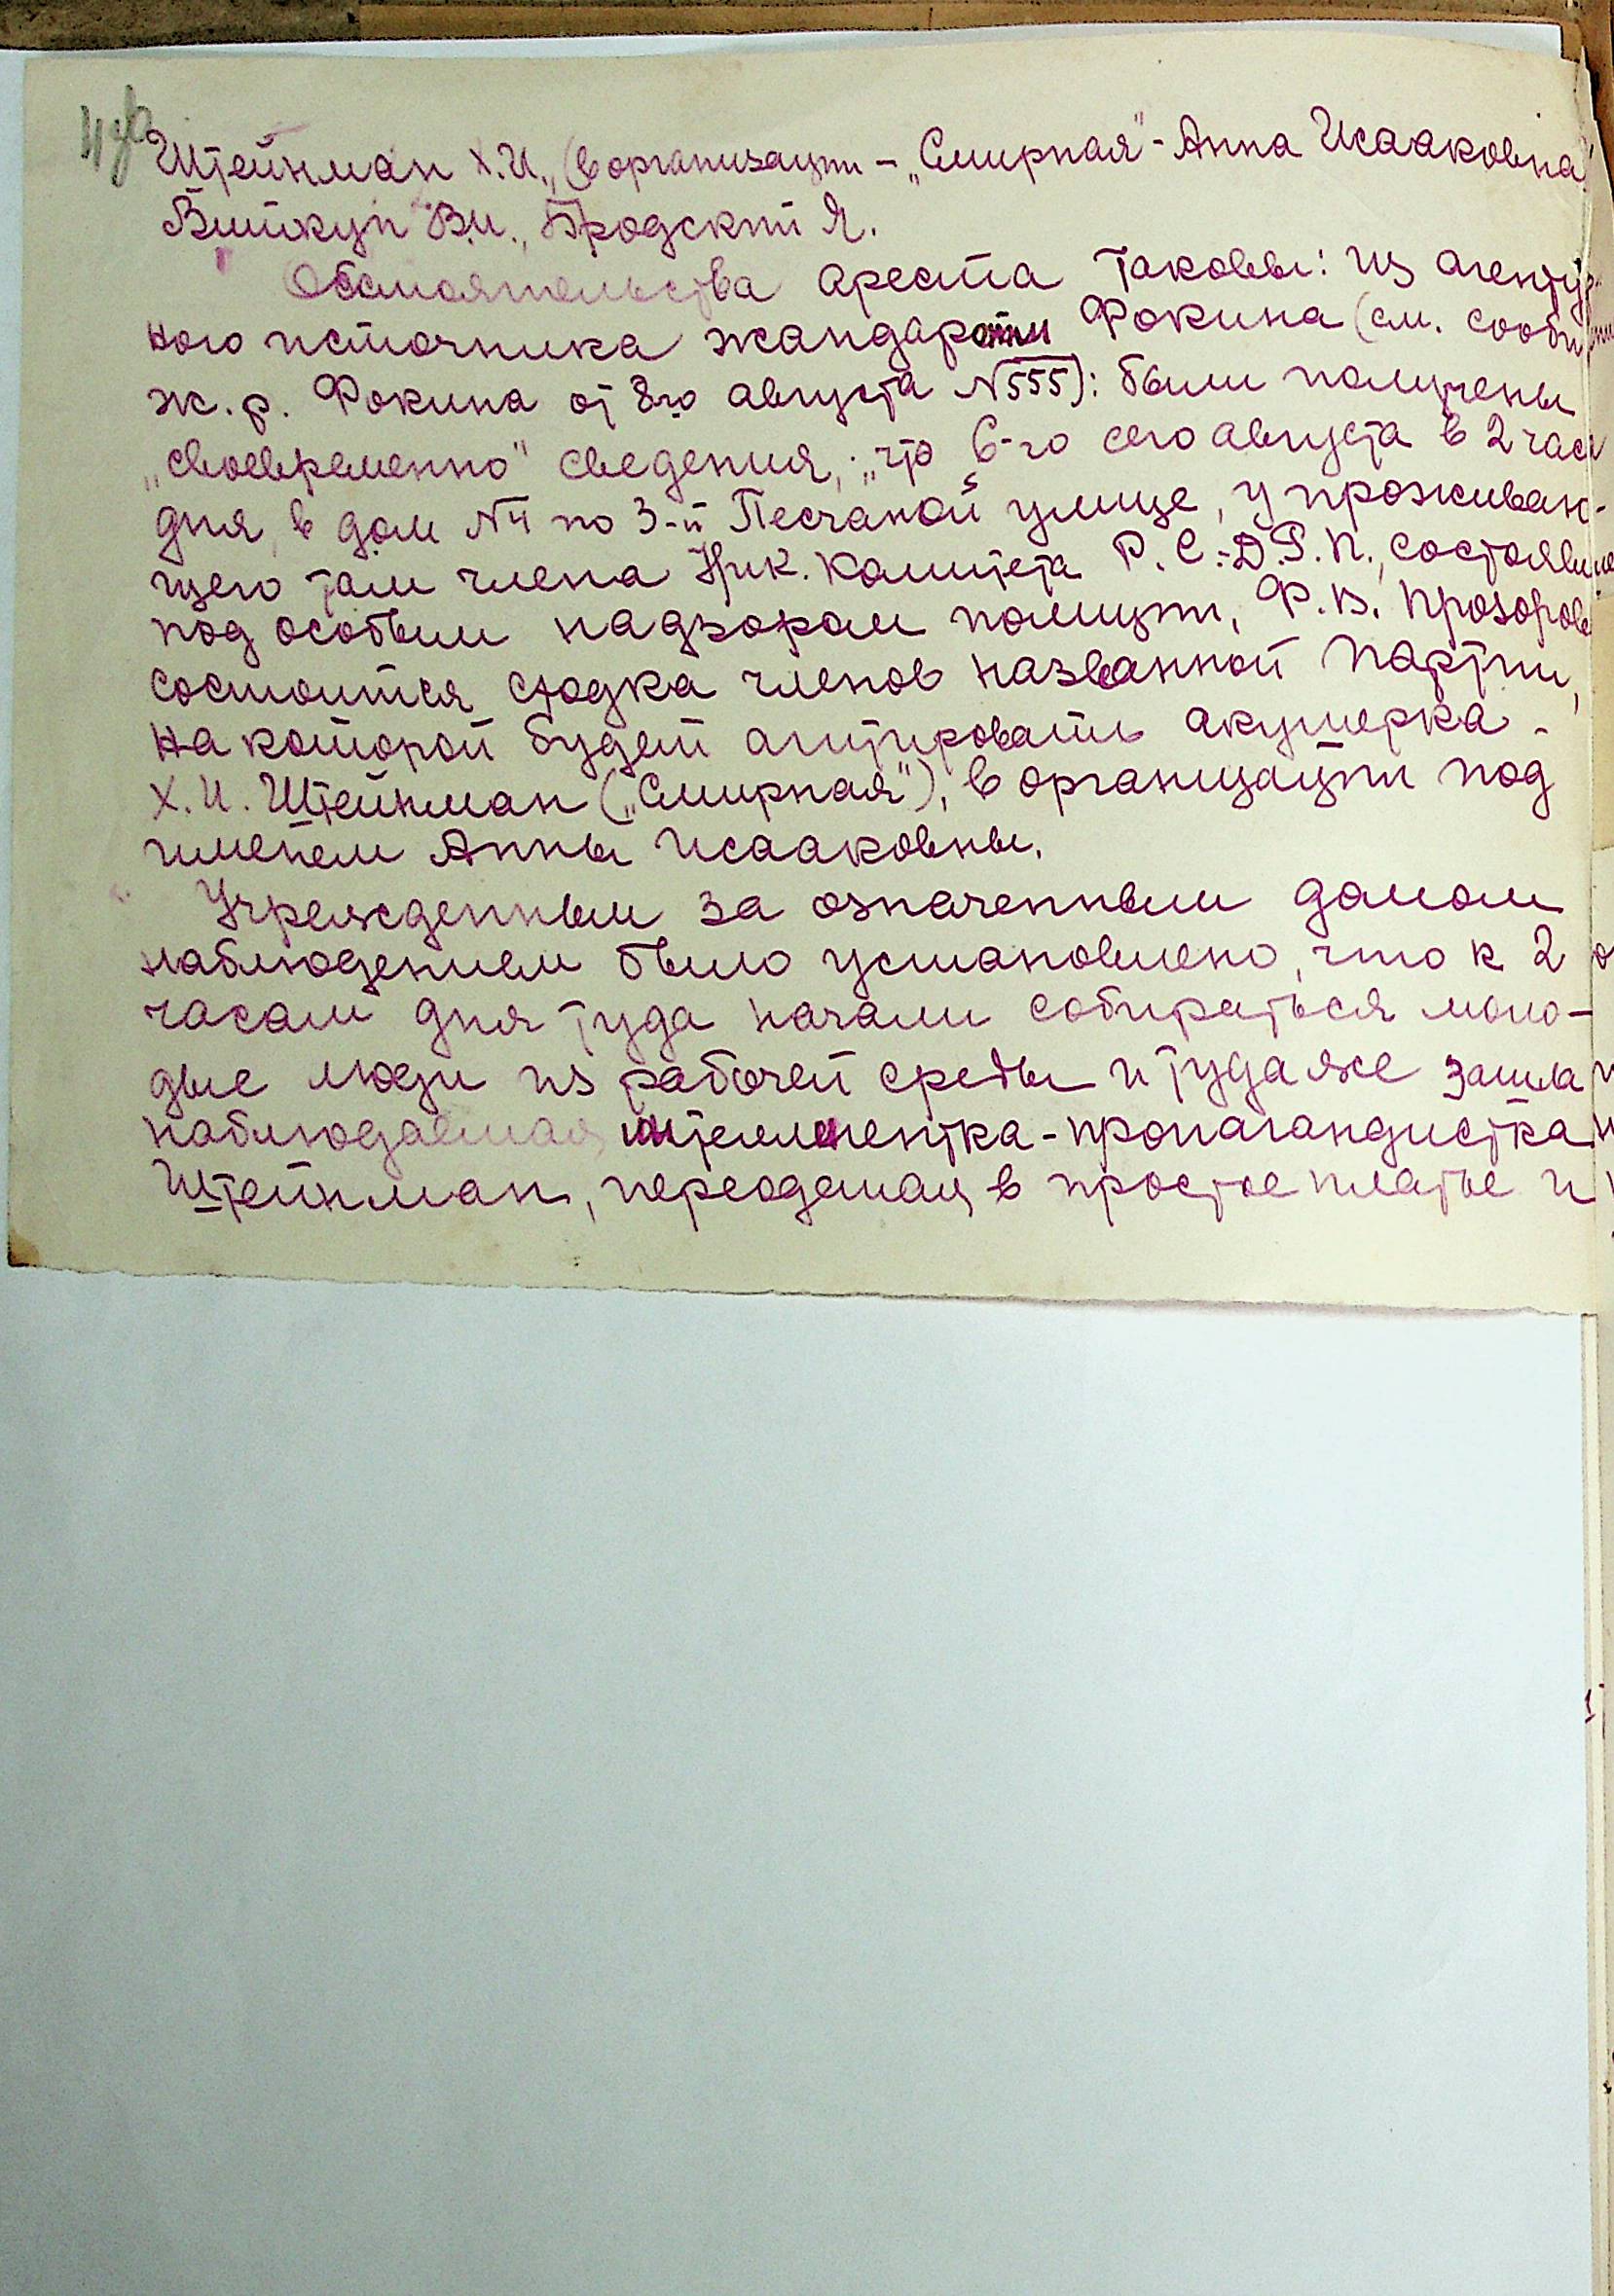 Штейнман Х.И., (в организации – „Смирная" - Анна Исааковна)
В.И., Бродский Я.
Обстоятельства ареста таковы: из агентур-
ного источника Фокина (см. сообщ
ж.р. Фокина от 8го августа №555): были получены
„своевременно" сведения, „что 6-го сего августа в 2 часа
дня, в дом №4 по 3-й Песчаной улице, у проживаю-
щего там члена Ник. комитета Р.С.-Д.Р.П., состоявше
под особым надзором полиции, Ф.В. Прозоров
состоится сходка членов названной партии,
на которой будет агитировать акушерка -
Х.И. Штейнман („Смирная"), в организации под
именем Анны Исааковны.
Учрежденным за означенным домом
наблюдением было установлено, что к 2
часам дня туда начали собираться моло-
дые люди из рабочей среды и туда же зашла
наблюдаемая интеллигентка-пропагандистка
Штейнман, переодетая в простое платье и